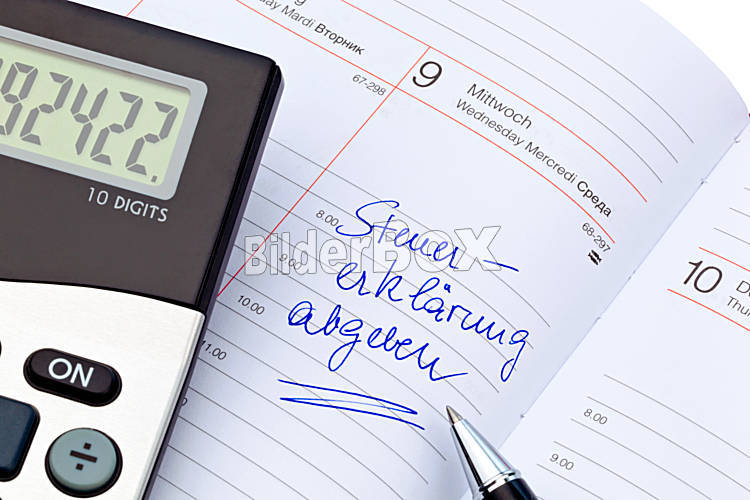 day Mardi Вторник
67-298
9
Mittwoch
Wednesday Mercredi Среда
68-297
8.00
9.00
10.00
11.00
Steuer-
erklärung
abgeben
BilderBOX
82422.
10 DIGITS
ON
÷
10
Thu
8.00
9.00